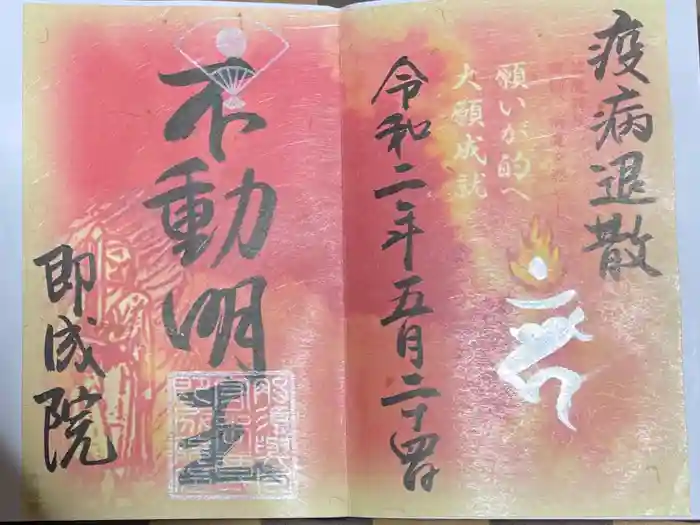 疫病退散
願いが的へ
大願成就
令和二年五月二十四日
不動明王
即成院